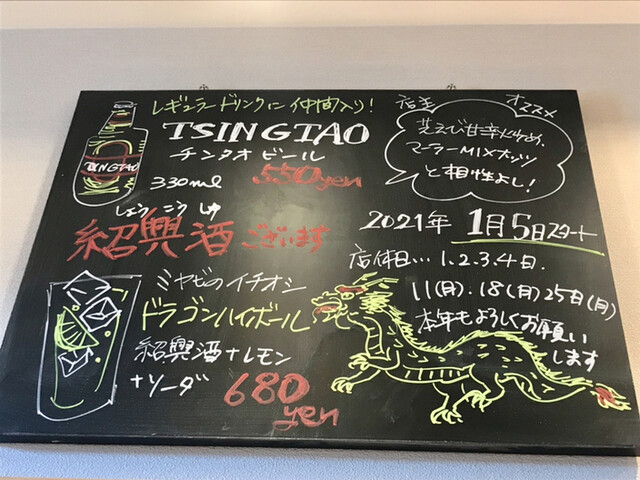 レギュラードリンクに仲間入り!
TSINGTAO
チンタオビール
330ml 550yen
TSINGTAO
店主 オススメ
芝えび甘辛炒め、
マーラーMIXナッツ
と相性よし!
しょうこうしゅ
紹興酒ございます
ミヤビのイチオシ
ドラゴンハイボール
紹興酒+レモン
+ソーダ 680
yen
2021年 1月5日スタート
店休日…1.2.3.4日.
11(月).18(月)25日(月)
本年もよろしくお願い
します